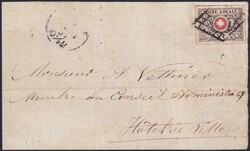 POSTE LOCALE
Monsieur A Vettiner
Membre du Conseil Administratif
Hôtel de Ville